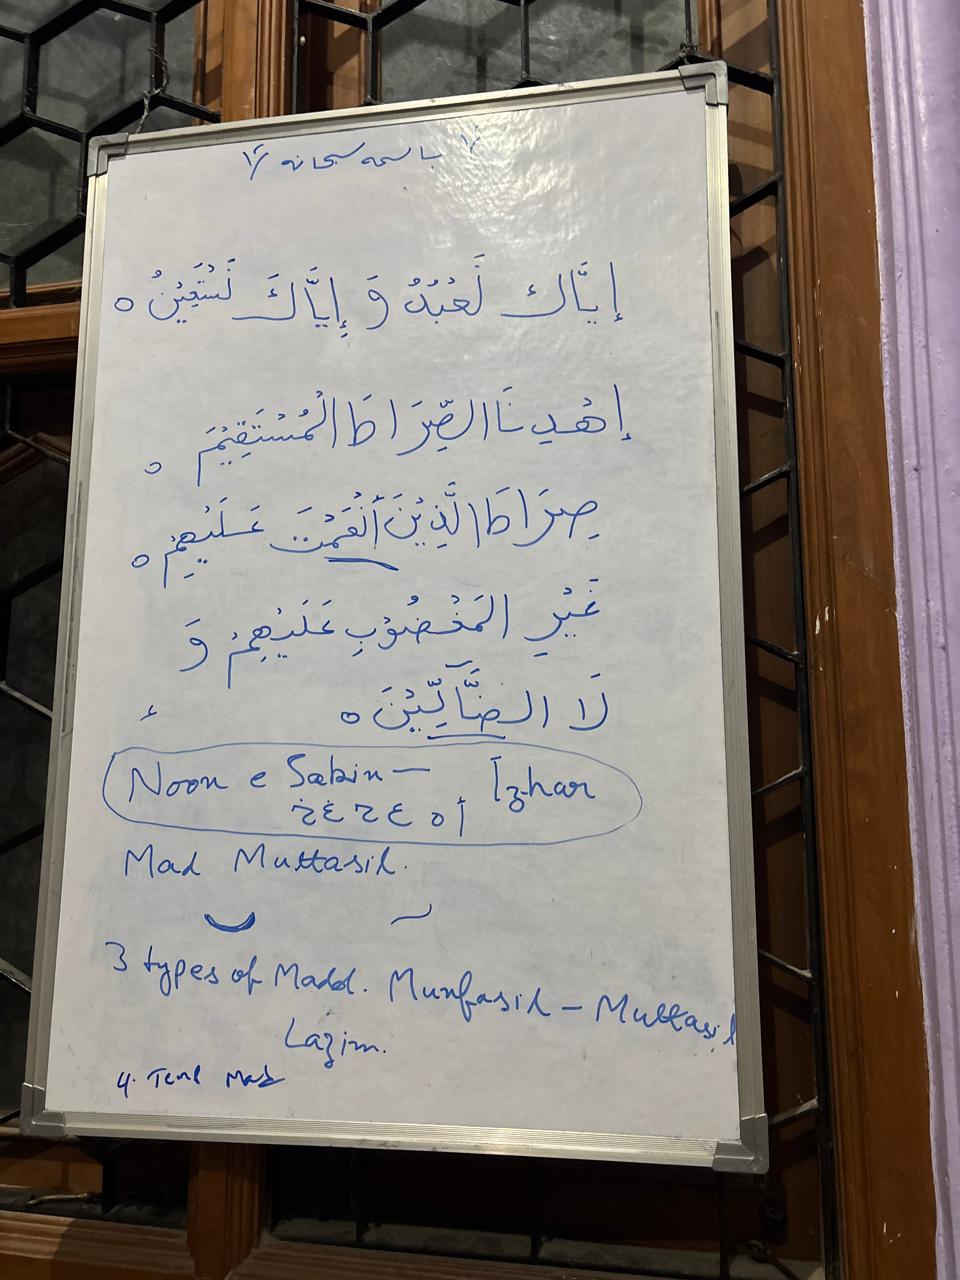 باسمہ سبحانہ
إِيَّاكَ نَعْبُدُ وَ إِيَّاكَ نَسْتَعِيْنُ ہ
إِهْدِنَا الصِّرَاطَ الْمُسْتَقِيْمَ ہ
صِرَاطَ الَّذِيْنَ أَنْعَمْتَ عَلَيْهِمْ ہ
غَيْرِ الْمَغْضُوْبِ عَلَيْهِمْ وَ
لَا الضَّآلِّيْنَ ہ ء
Noon e Sakin — Izhar
أ ه ع ح غ خ
Mad Muttasil.
3 types of Madd. Munfasil – Muttasil
Lazim.
4.